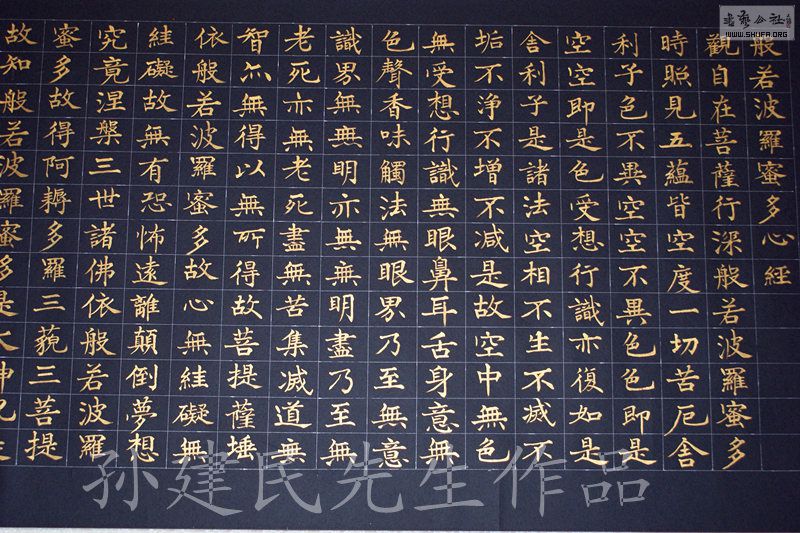 般若波羅蜜多心經
觀自在菩薩行深般若波羅蜜多
時照見五蘊皆空度一切苦厄舍
利子色不異空空不異色色即是
空空即是色受想行識亦復如是
舍利子是諸法空相不生不滅不
垢不淨不增不減是故空中無色
無受想行識無眼鼻耳舌身意無
色聲香味觸法無眼界乃至無意
識界無無明亦無無明盡乃至無
老死亦無老死盡無苦集滅道無
智亦無得以無所得故菩提薩埵
依般若波羅蜜多故心無絓礙無
絓礙故無有恐怖遠離顛倒夢想
究竟涅槃三世諸佛依般若波羅
蜜多故得阿耨多羅三藐三菩提
故知般若波羅蜜多是大神咒
孙建民先生作品
書藝公社
WWW.SHUFA.ORG